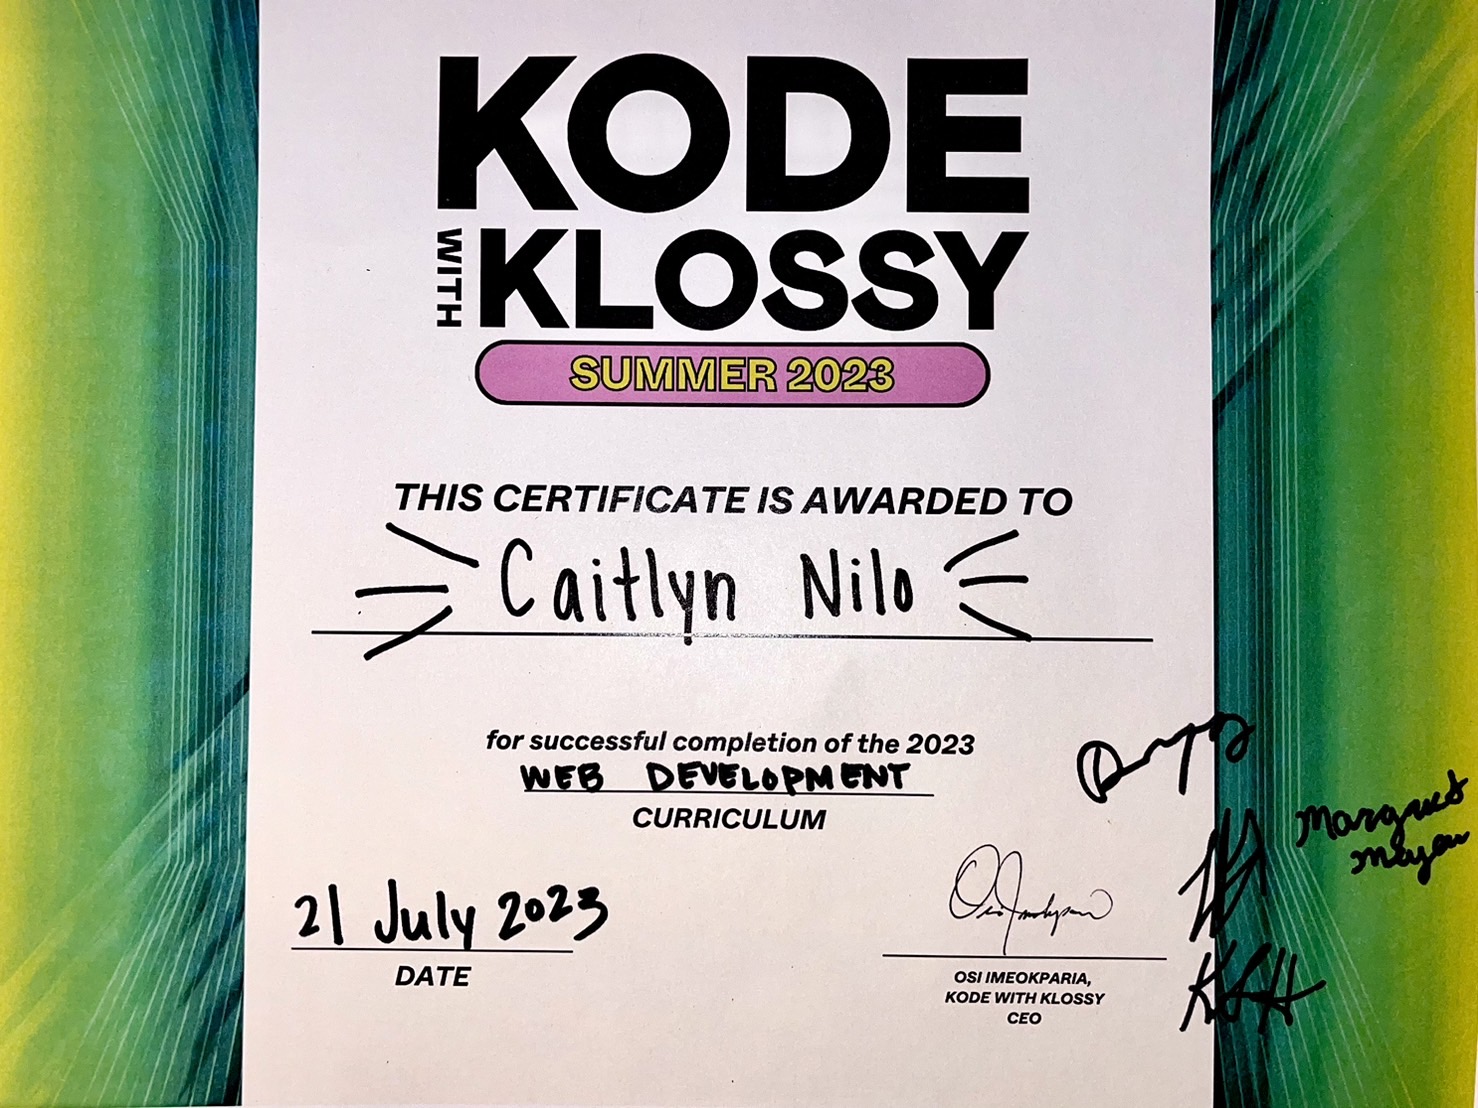 KODE
WITH KLOSSY
SUMMER 2023
THIS CERTIFICATE IS AWARDED TO
Caitlyn Nilo
for successful completion of the 2023
WEB DEVELOPMENT
CURRICULUM
21 July 2023
DATE
OSI IMEOKPARIA,
KODE WITH KLOSSY
CEO
Margaret